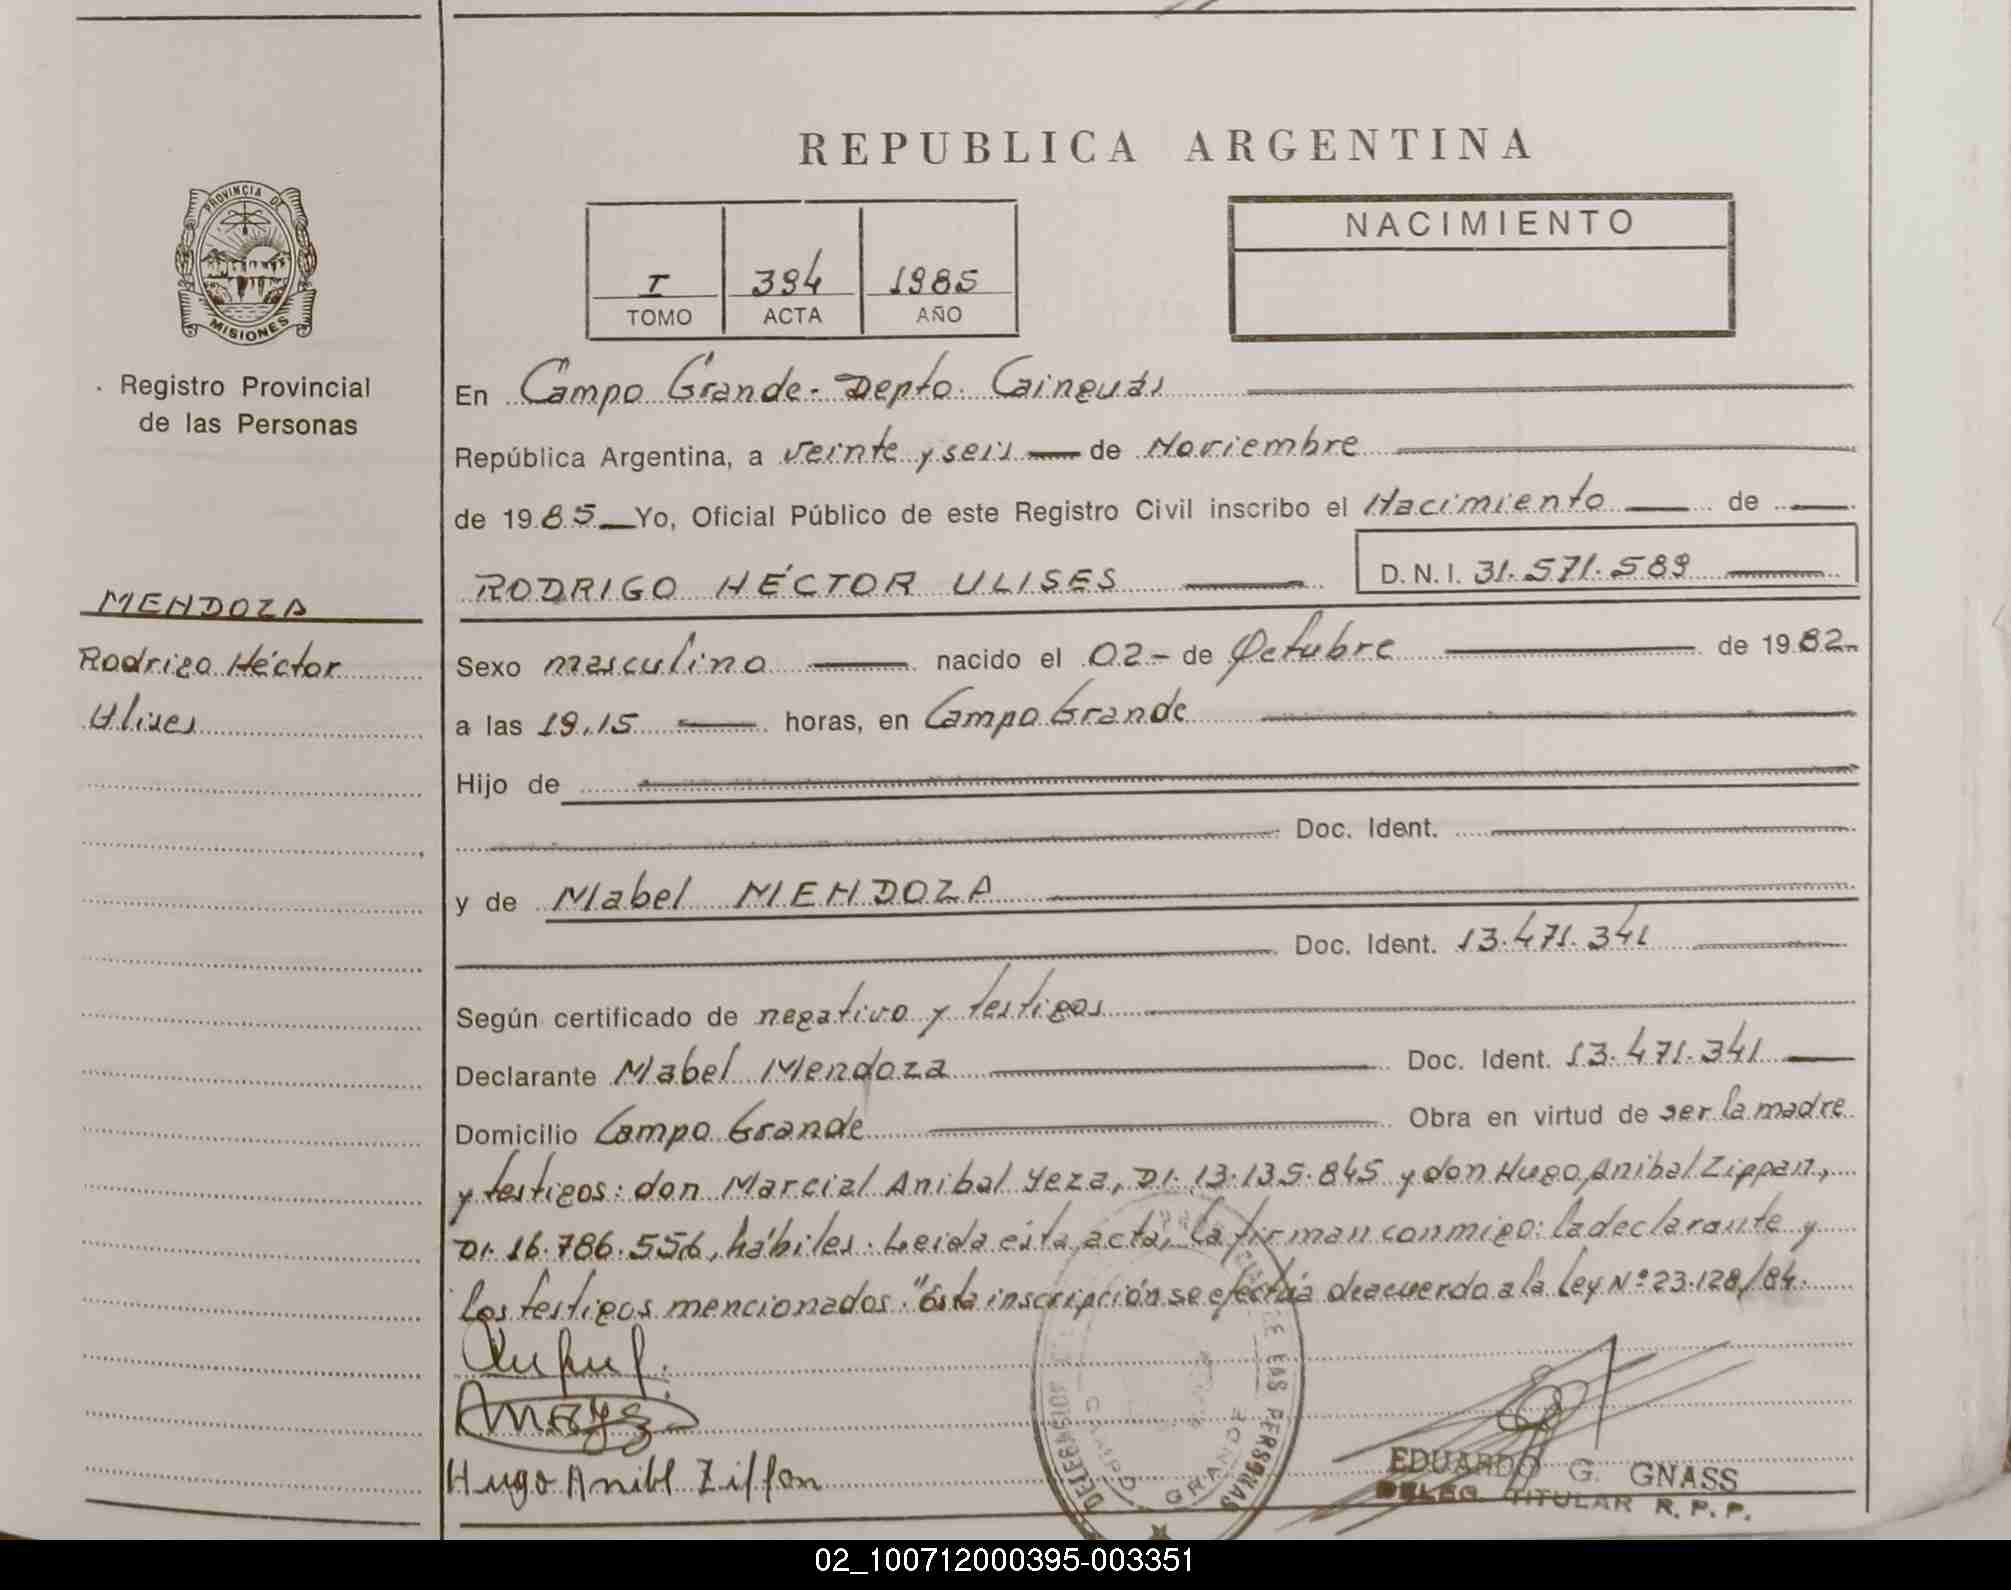 REPUBLICA ARGENTINA
PROVINCIA DE
MISIONES
Registro Provincial
de las Personas
NACIMIENTO
I 394 1985
TOMO ACTA AÑO
En Campo Grande - Depto. Cainguás
República Argentina, a veinte y seis de Noviembre
de 1985 Yo, Oficial Público de este Registro Civil inscribo el Nacimiento de
RODRIGO HÉCTOR ULISES D.N.I. 31.571.589
MENDOZA
Rodrigo Héctor
Ulises
Sexo masculino nacido el 02- de Octubre de 1982-
a las 19,15 horas, en Campo Grande
Hijo de
Doc. Ident.
y de Mabel MENDOZA
Doc. Ident. 13.471.341
Según certificado de negativo y testigos
Declarante Mabel Mendoza Doc. Ident. 13.471.341
Domicilio Campo Grande Obra en virtud de ser la madre
y testigos: don Marcial Anibal Yeza, DI. 13.135.845 y don Hugo Anibal Zippan,
DI. 16.786.556, hábiles. Leida ésta acta, la firman conmigo: la declarante y
los testigos mencionados. "Ésta inscripción se efectúa deacuerdo a la Ley Nº 23.128/84.
Hugo Anibl Zippan
DELEGACION DE LAS PERSONAS
CAMPO GRANDE
EDUARDO G. GNASS
DELEG. TITULAR R. P. P.
02_100712000395-003351